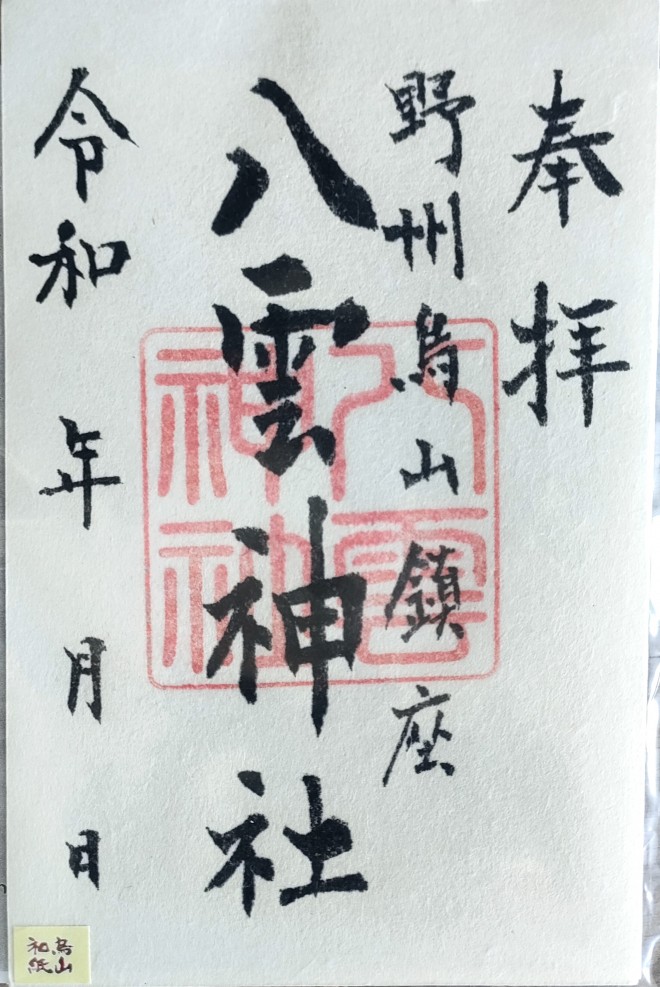 奉拝
野州烏山鎮座
八雲神社
令和 年 月 日
八雲
神社
烏山
和紙